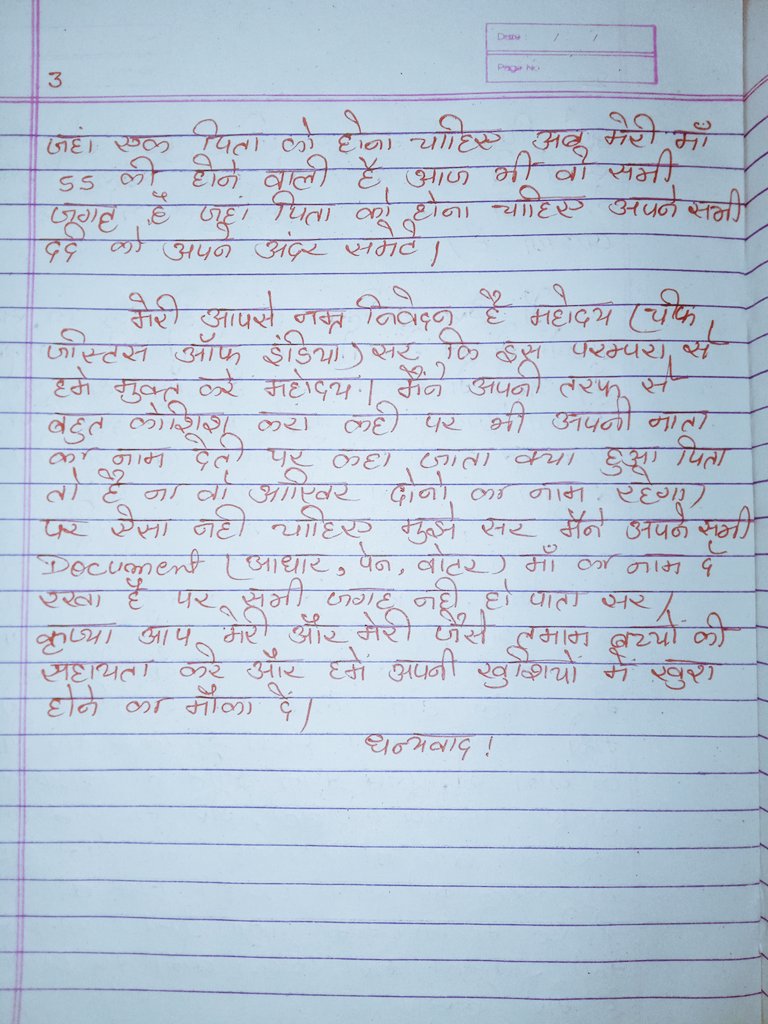 Date : / /
Page No.
3
जहां एक पिता को होना चाहिए अब मेरी माँ
55 की होने वाली है आज भी वो सभी
जगह है जहां पिता को होना चाहिए अपने सभी
दर्द को अपने अंदर समेटे।
मेरी आपसे नम्र निवेदन है महोदय (चीफ
जस्टिस ऑफ इंडिया) सर कि इस परम्परा से
हमे मुक्त करे महोदय। मैंने अपनी तरफ से
बहुत कोशिश करा कही पर भी अपनी माता
का नाम देती पर कहा जाता क्या हुआ पिता
तो है ना वो आखिर दोनो का नाम रहेगा)
पर ऐसा नही चाहिए मुझे सर मैंने अपने सभी
Document (आधार, पेन, वोटर) माँ का नाम दे
रखा है पर सभी जगह नही हो पाता सर,
कृप्या आप मेरी और मेरी जैसे तमाम बच्चों की
सहायता करे और हमें अपनी खुशियों में खुश
होने का मौका दें।
धन्यवाद !